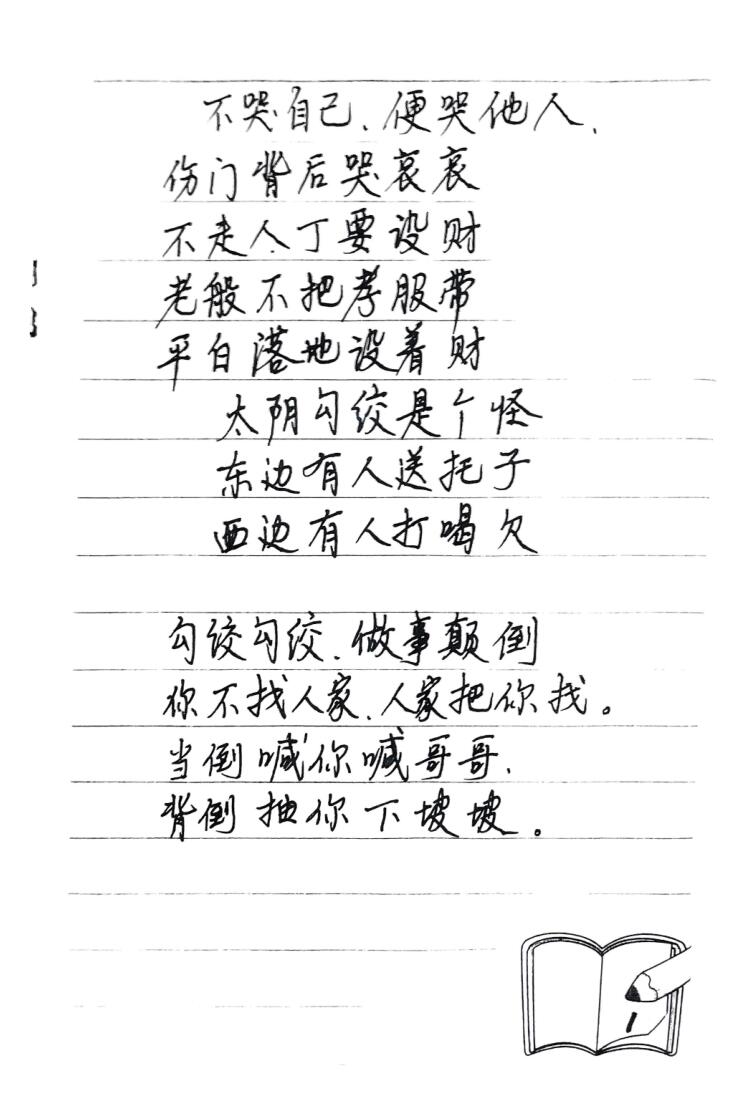 不哭自己、便哭他人、
伤门背后哭哀哀
不走人丁要设财
老般不把孝服带
平白落地设着财
太阴勾绞是个怪
东边有人送托子
西边有人打喝欠
勾绞勾绞、做事颠倒
你不找人家、人家把你找。
当倒喊你喊哥哥、
背倒抽你下坡坡。
1